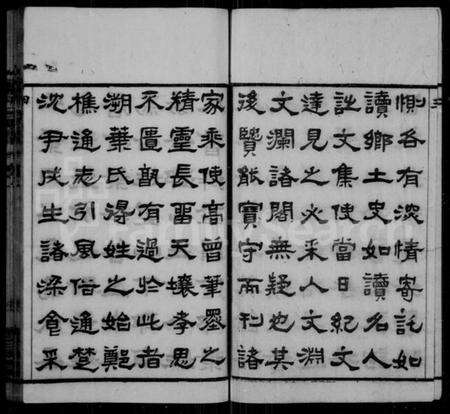 惻各有深情寄託如
讀鄉土史如讀名人
註文集使當日紀文
達見之必采入文淵
文瀾諸閣無疑也其
後賢能寶守而刊諸
家乘使高曾筆墨之
精靈長畱天壤孝思
不匱孰有過於此者
溯華氏得姓之始鄭
樵通志引風俗通楚
沈尹戌生諸梁食采